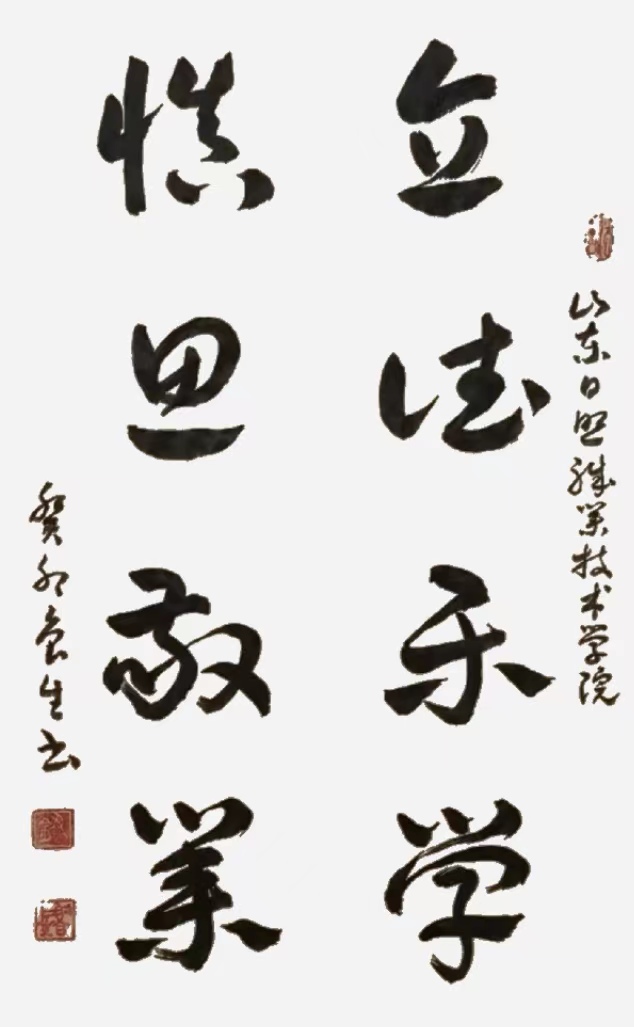 山东日照职业技术学院
立德乐学
慎思敬业
癸卯食生书